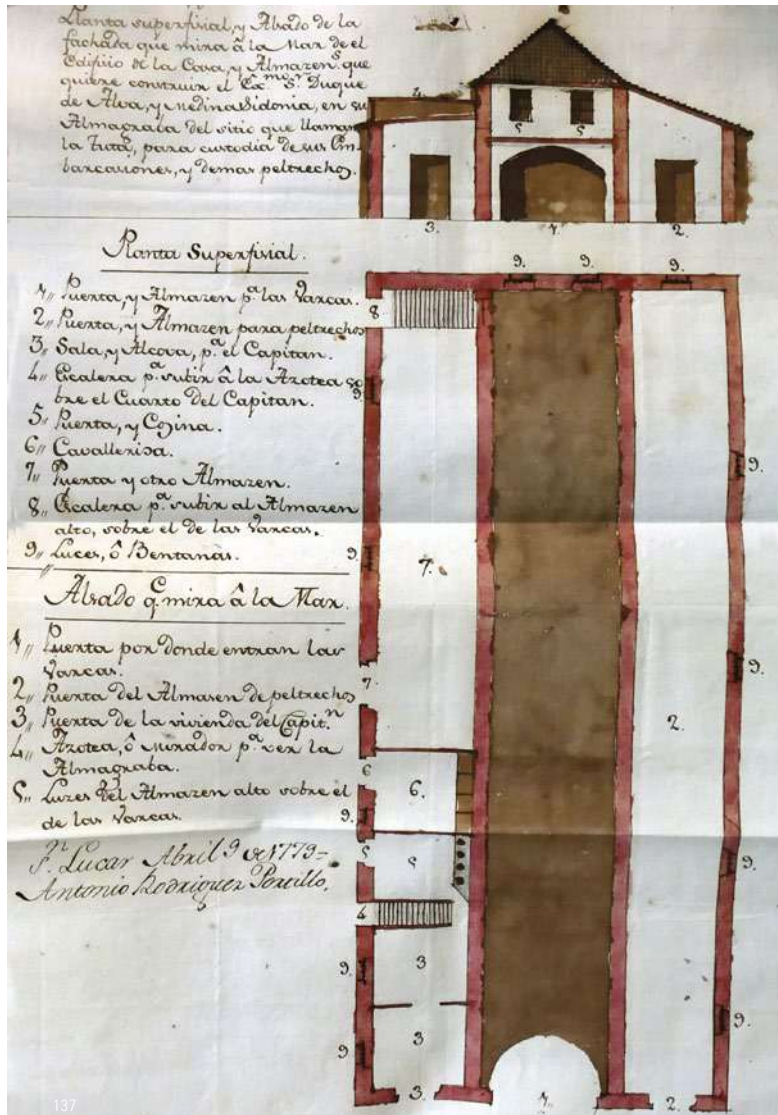 Llanta superficial, y Alsado de la
fachada que mira â la Mar de el
Edificio de la Casa, y Almazen.s que
quiere construir el Ex.mo S.r Duque
de Alva, y Medina Sidonia, en su
Almagraba del sitio que llaman
la Tuta, para custodia de sus Em-
barcasiones, y demas peltrechos.
4.
5
5
3.
1.
2.
Planta Superfisial.
1,, Puerta, y Almazen p.a las Varcas.
2,, Puerta, y Almazen para peltrechos
3,, Sala, y Alcova, p.a el Capitan.
4,, Escalera p.a subir â la Azotea so
bre el Cuarto del Capitan.
5,, Puerta, y Cozina.
6,, Cavallerisa.
7,, Puerta y otro Almazen.
8,, Escalera p.a subir al Almazen
alto, sobre el de las Varcas.
9,, Luces, ô Bentanas.
Alsado q.e mira â la Mar.
1,, Puerta por donde entran las
Varcas.
2,, Puerta del Almasen de peltrechos
3,, Puerta de la vivienda del Capit.n
4,, Azotea, ô mirador p.a ver la
Almagraba.
5,, Luzes del Almazen alto sobre el
de las Varcas.
S.n Lucar Abril 9 de 1779=
Antonio Rodriguez Portillo.
9.
9.
9.
8
9.
9.
9.
7.
9.
7.
2.
6
6.
9.
5
5
9.
4
3
9.
9.
3
9.
3.
1.
2.
137